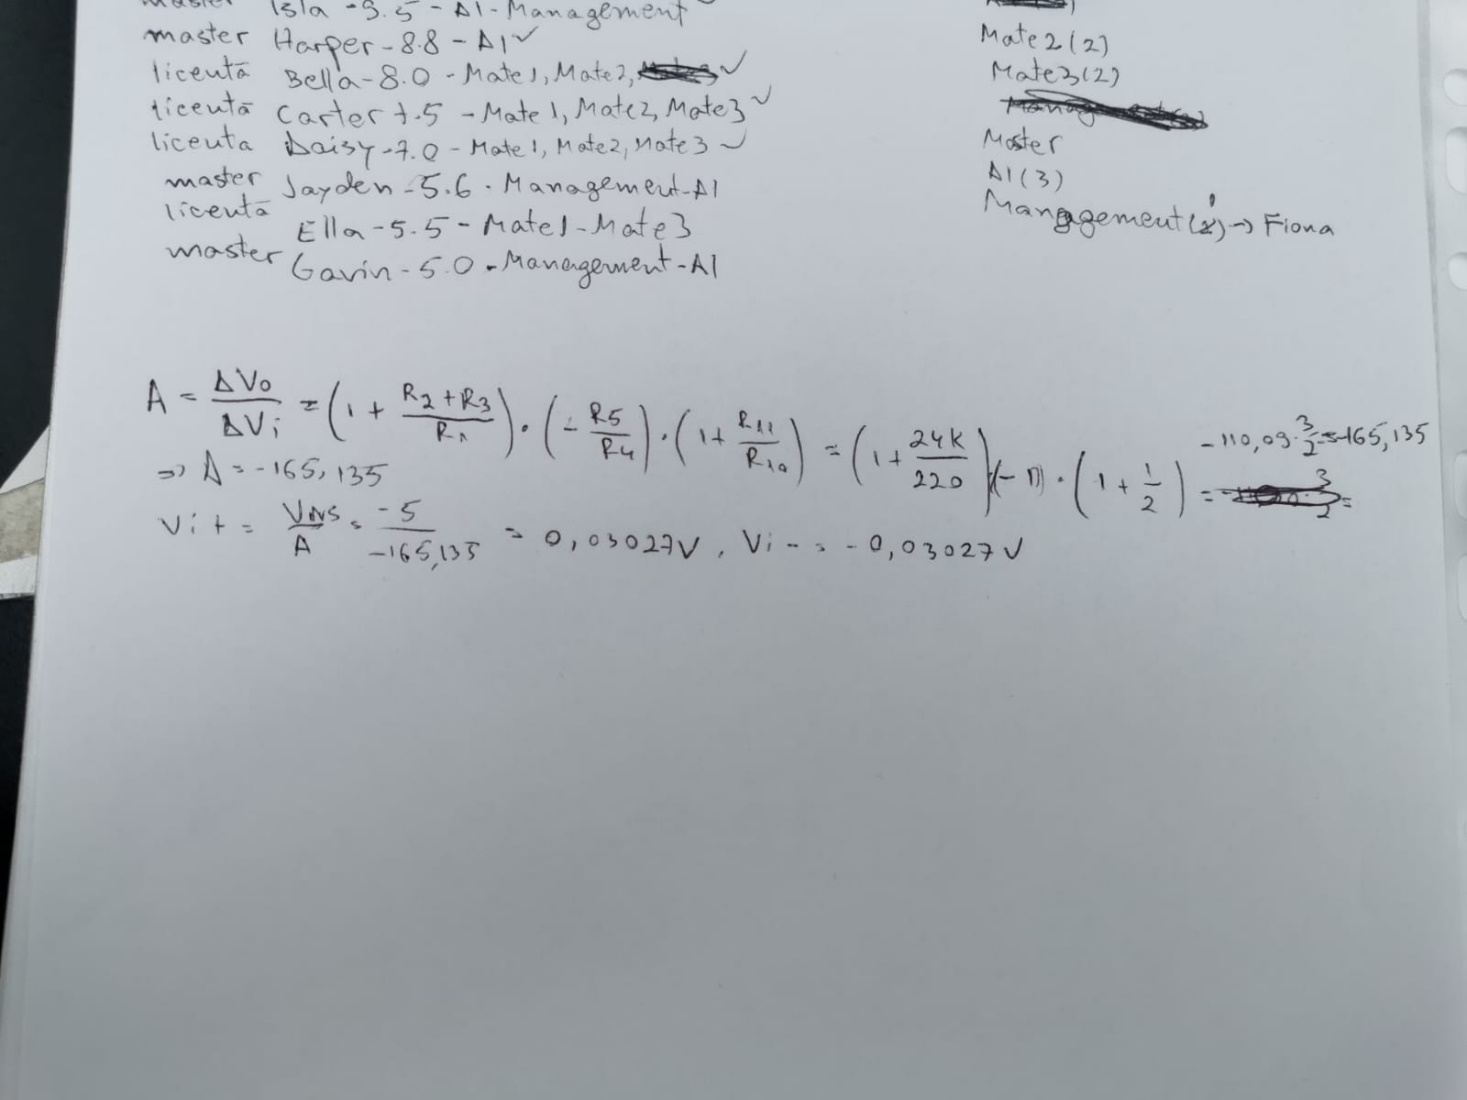 master Isla - 9.5 - AI - Management
master Harper - 8.8 - AI ✓
licentă Bella - 8.0 - Mate1, Mate2, ✓
licentă Carter 7.5 - Mate1, Mate2, Mate3 ✓
licenta Daisy - 7.0 - Mate1, Mate2, Mate3 ✓
master Jayden - 5.6 - Management - AI
licentă Ella - 5.5 - Mate1 - Mate3
master Gavin - 5.0 - Management - AI
Mate2(2)
Mate3(2)
Master
AI(3)
Management(1) → Fiona
A = ΔVo/ΔVi = (1 + (R2+R3)/R1) · (-R5/R4) · (1 + R11/R10) = (1 + 24k/220)(-1) · (1 + 1/2) = -110,09 · 3/2 = -165,135
⇒ A = -165,135
Vi+ = VNS/A = -5/-165,135 = 0,03027V, Vi- = -0,03027V